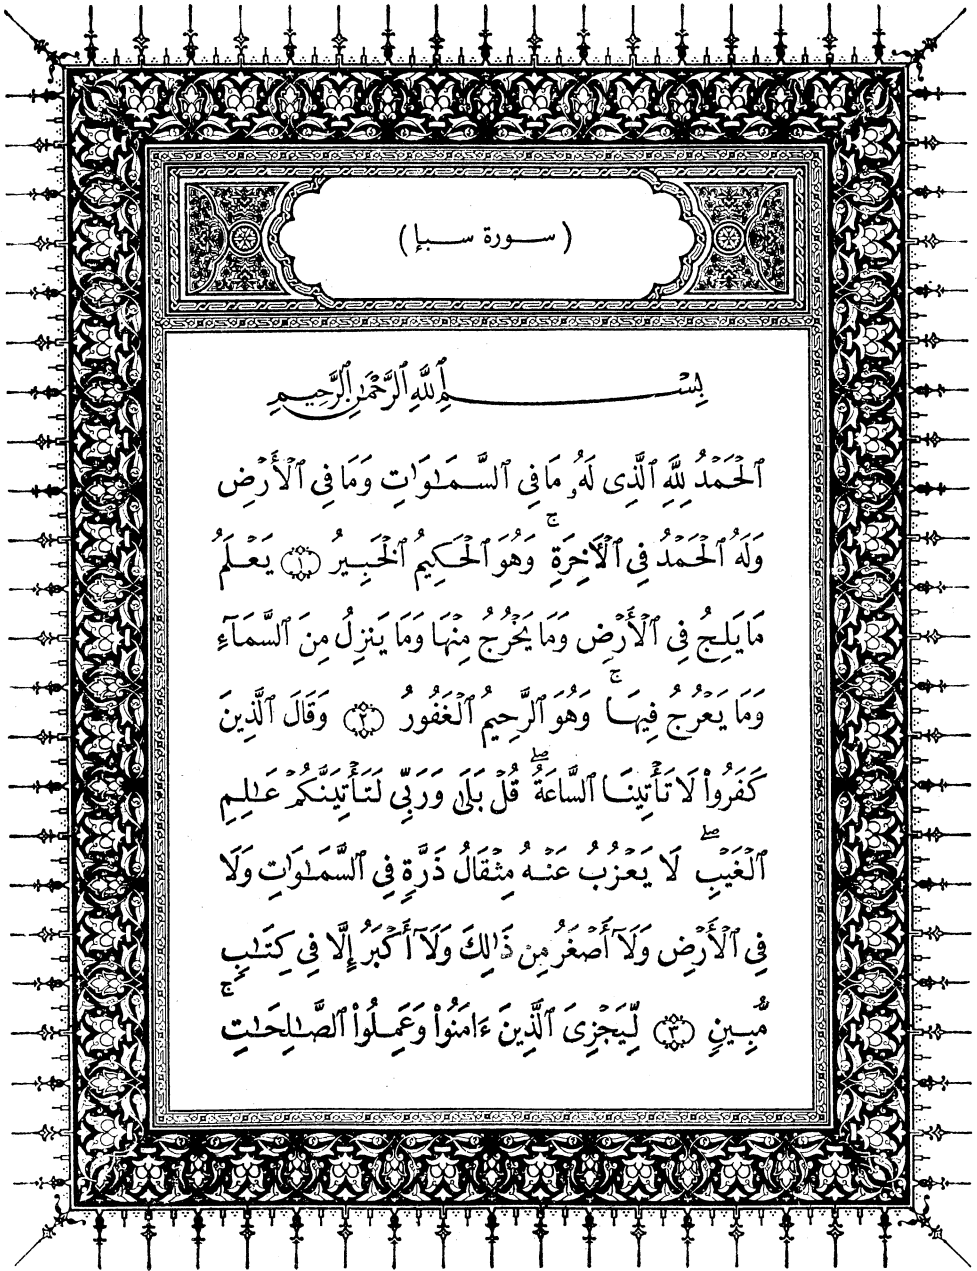 (سورة سبإ)
بِسْمِ ٱللَّهِ ٱلرَّحْمَٰنِ ٱلرَّحِيمِ
ٱلْحَمْدُ لِلَّهِ ٱلَّذِى لَهُۥ مَا فِى ٱلسَّمَٰوَٰتِ وَمَا فِى ٱلْأَرْضِ
وَلَهُ ٱلْحَمْدُ فِى ٱلْأَخِرَةِ ۚ وَهُوَ ٱلْحَكِيمُ ٱلْخَبِيرُ ﴿١﴾ يَعْلَمُ
مَا يَلِجُ فِى ٱلْأَرْضِ وَمَا يَخْرُجُ مِنْهَا وَمَا يَنزِلُ مِنَ ٱلسَّمَآءِ
وَمَا يَعْرُجُ فِيهَا ۚ وَهُوَ ٱلرَّحِيمُ ٱلْغَفُورُ ﴿٢﴾ وَقَالَ ٱلَّذِينَ
كَفَرُوا۟ لَا تَأْتِينَا ٱلسَّاعَةُ ۖ قُلْ بَلَىٰ وَرَبِّى لَتَأْتِيَنَّكُمْ عَٰلِمِ
ٱلْغَيْبِ ۖ لَا يَعْزُبُ عَنْهُ مِثْقَالُ ذَرَّةٍ فِى ٱلسَّمَٰوَٰتِ وَلَا
فِى ٱلْأَرْضِ وَلَآ أَصْغَرُ مِن ذَٰلِكَ وَلَآ أَكْبَرُ إِلَّا فِى كِتَٰبٍ
مُّبِينٍ ﴿٣﴾ لِّيَجْزِىَ ٱلَّذِينَ ءَامَنُوا۟ وَعَمِلُوا۟ ٱلصَّٰلِحَٰتِ ۚ